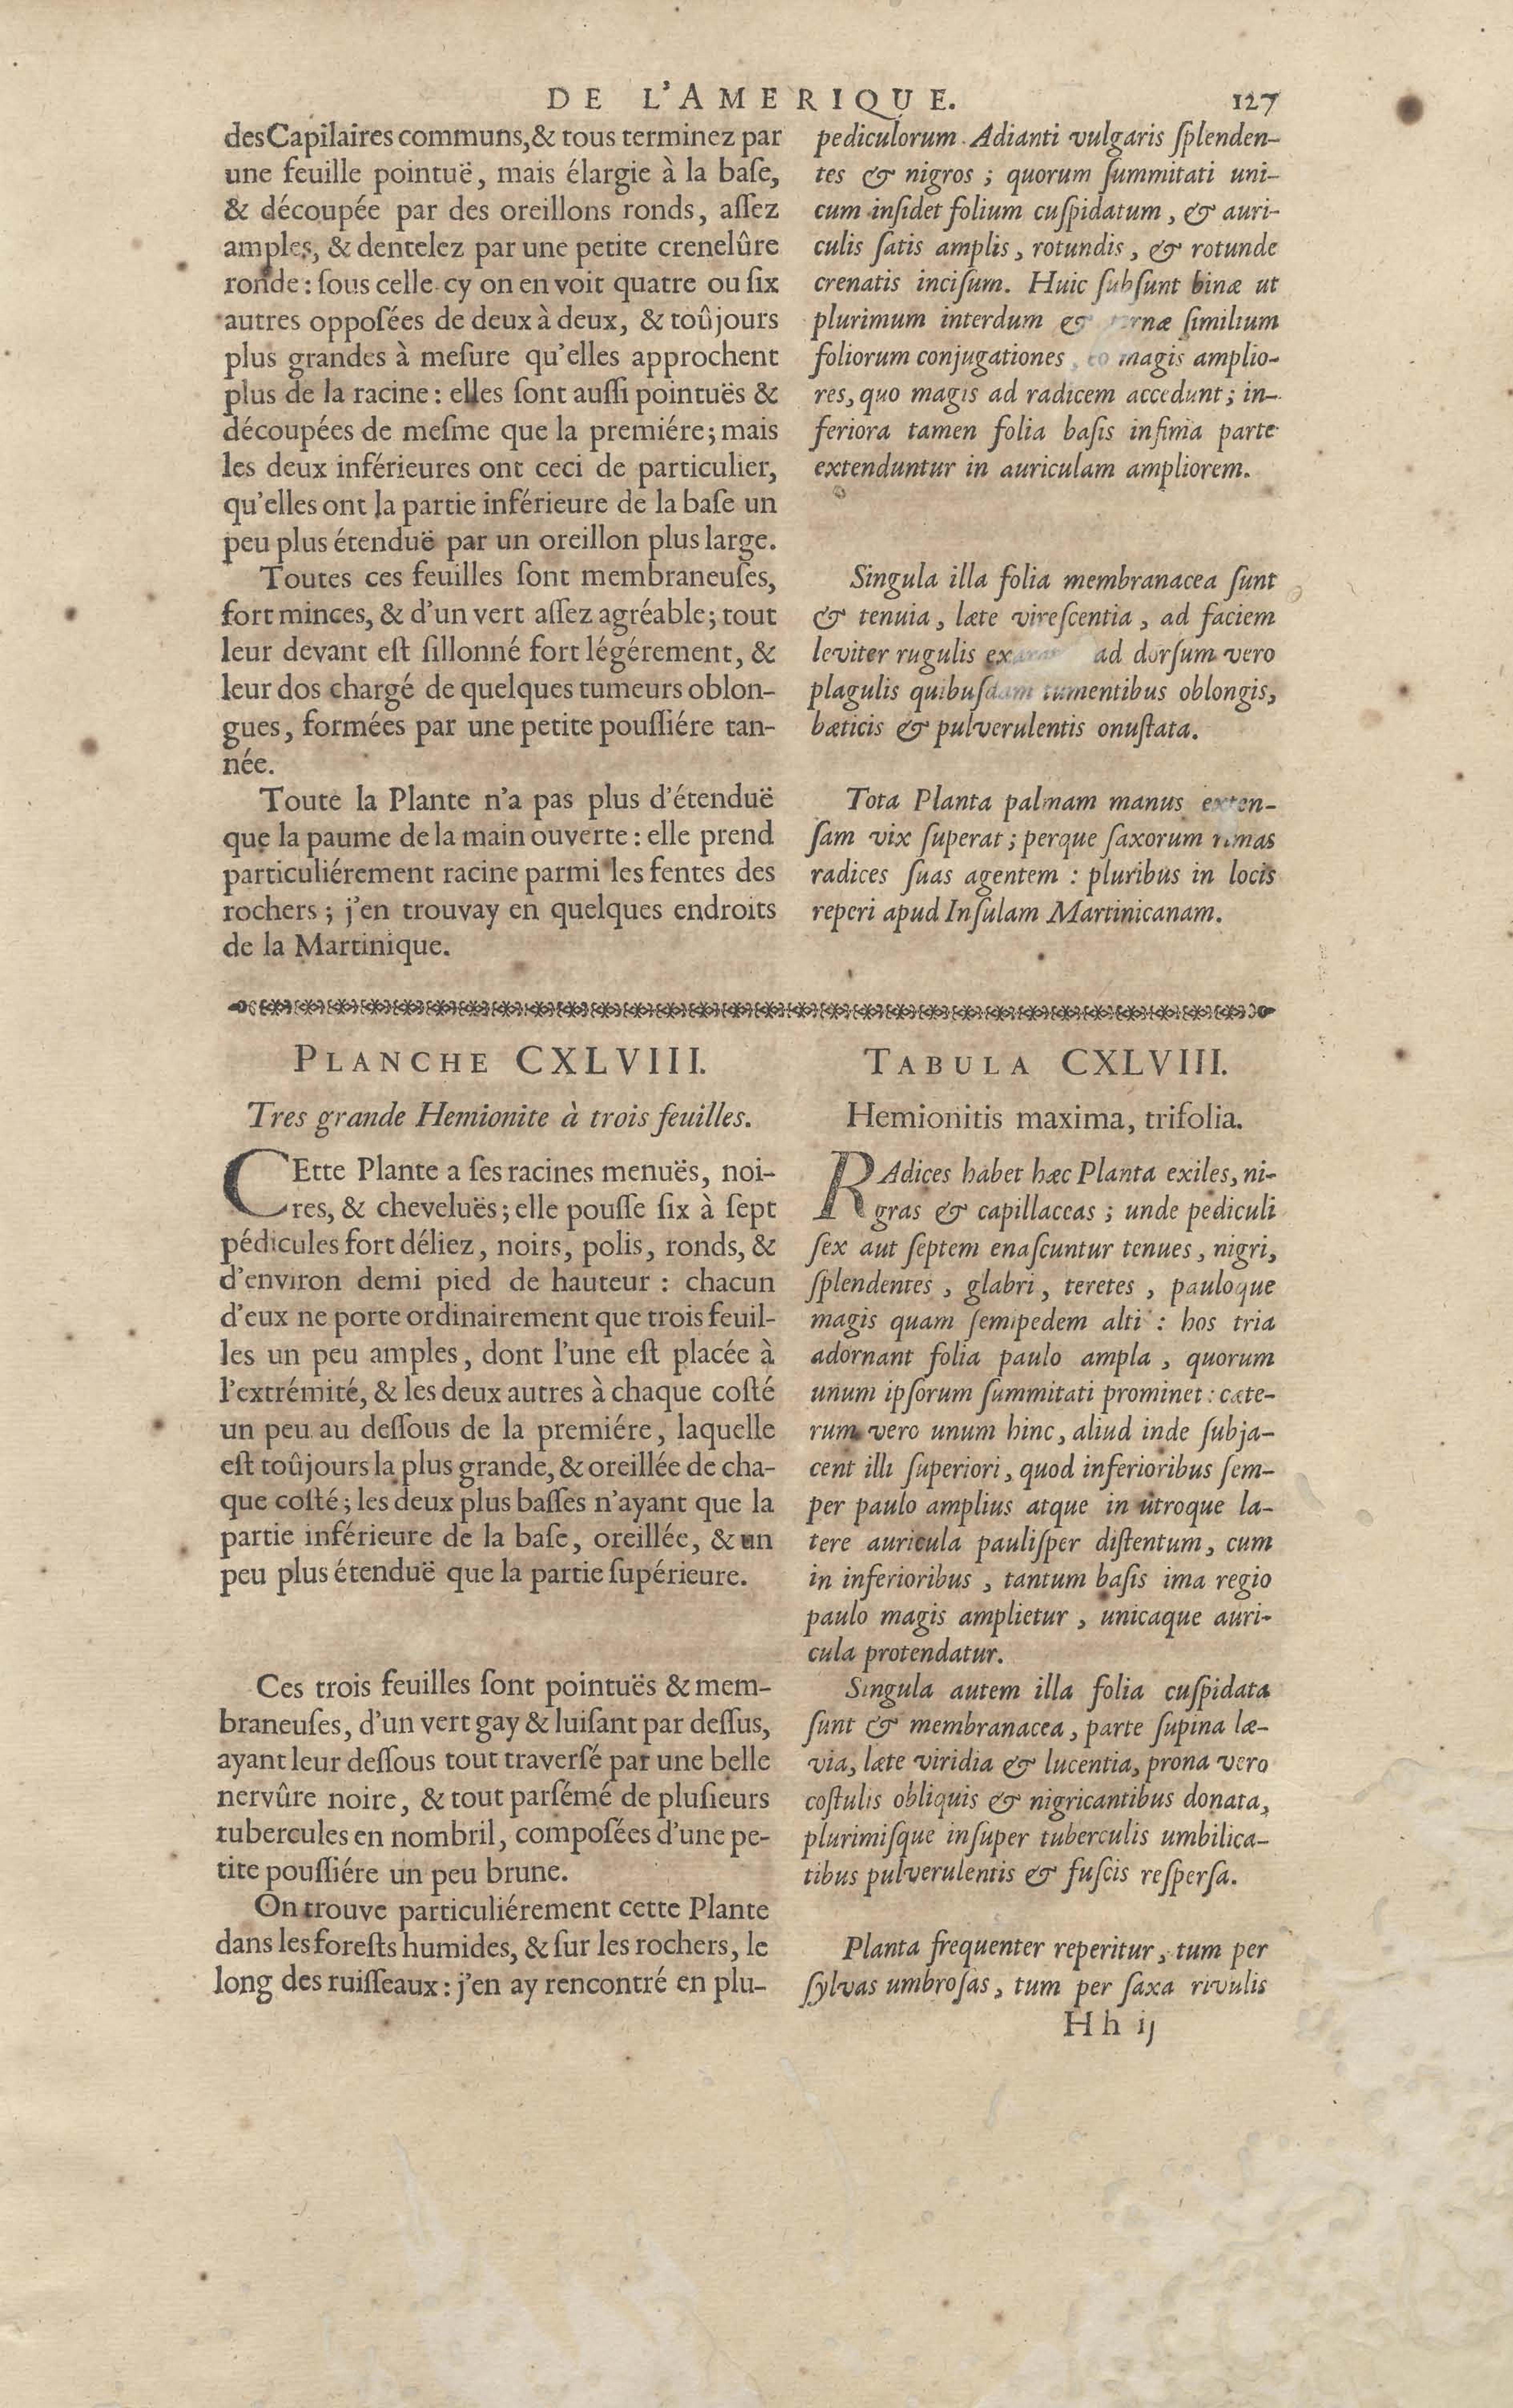 DE L'AMERIQUE. 127
des Capilaires communs, & tous terminez par
une feuille pointuë, mais élargie à la baſe,
& découpée par des oreillons ronds, aſſez
amples, & dentelez par une petite crenelûre
ronde : ſous celle-cy on en voit quatre ou ſix
autres oppoſées de deux à deux, & toûjours
plus grandes à meſure qu'elles approchent
plus de la racine : elles ſont auſſi pointuës &
découpées de meſme que la premiére ; mais
les deux inférieures ont ceci de particulier,
qu'elles ont la partie inférieure de la baſe un
peu plus étenduë par un oreillon plus large.
Toutes ces feuilles ſont membraneuſes,
fort minces, & d'un vert aſſez agréable ; tout
leur devant eſt ſillonné fort légérement, &
leur dos chargé de quelques tumeurs oblon-
gues, formées par une petite pouſſiére tan-
née.
Toute la Plante n'a pas plus d'étenduë
que la paume de la main ouverte : elle prend
particuliérement racine parmi les fentes des
rochers ; j'en trouvay en quelques endroits
de la Martinique.
pediculorum Adianti vulgaris ſplenden-
tes & nigros ; quorum ſummitati uni-
cum inſidet folium cuſpidatum, & auri-
culis ſatis amplis, rotundis, & rotunde
crenatis inciſum. Huic ſubſunt binæ ut
plurimum interdum & ſimilium
foliorum conjugationes, eo magis amplio-
res, quo magis ad radicem accedunt ; in-
feriora tamen folia baſis infima parte
extenduntur in auriculam ampliorem.
Singula illa folia membranacea ſunt
& tenuia, læte vireſcentia, ad faciem
leviter rugulis ad dorſum vero
plagulis quibuſdam tumentibus oblongis,
bæticis & pulverulentis onuſtata.
Tota Planta palmam manus exten-
ſam vix ſuperat ; perque ſaxorum rimas
radices ſuas agentem : pluribus in locis
reperi apud Inſulam Martinicanam.
PLANCHE CXLVIII.
Tres grande Hemionite à trois feuilles.
CEtte Plante a ſes racines menuës, noi-
res, & cheveluës ; elle pouſſe ſix à ſept
pédicules fort déliez, noirs, polis, ronds, &
d'environ demi pied de hauteur : chacun
d'eux ne porte ordinairement que trois feuil-
les un peu amples, dont l'une eſt placée à
l'extrémité, & les deux autres à chaque coſté
un peu au deſſous de la premiére, laquelle
eſt toûjours la plus grande, & oreillée de cha-
que coſté ; les deux plus baſſes n'ayant que la
partie inférieure de la baſe, oreillée, & un
peu plus étenduë que la partie ſupérieure.
Ces trois feuilles ſont pointuës & mem-
braneuſes, d'un vert gay & luiſant par deſſus,
ayant leur deſſous tout traverſé par une belle
nervûre noire, & tout parſémé de pluſieurs
tubercules en nombril, compoſées d'une pe-
tite pouſſiére un peu brune.
On trouve particuliérement cette Plante
dans les foreſts humides, & ſur les rochers, le
long des ruiſſeaux : j'en ay rencontré en plu-
TABULA CXLVIII.
Hemionitis maxima, trifolia.
RAdices habet hæc Planta exiles, ni-
gras & capillaceas ; unde pediculi
ſex aut ſeptem enaſcuntur tenues, nigri,
ſplendentes, glabri, teretes, pauloque
magis quam ſemipedem alti : hos tria
adornant folia paulo ampla, quorum
unum ipſorum ſummitati prominet : cæte-
rum vero unum hinc, aliud inde ſubja-
cent illi ſuperiori, quod inferioribus ſem-
per paulo amplius atque in utroque la-
tere auricula pauliſper diſtentum, cum
in inferioribus, tantum baſis ima regio
paulo magis amplietur, unicaque auri-
cula protendatur.
Singula autem illa folia cuſpidata
ſunt & membranacea, parte ſupina læ-
via, læte viridia & lucentia, prona vero
coſtulis obliquis & nigricantibus donata,
plurimiſque inſuper tuberculis umbilica-
tibus pulverulentis & fuſcis reſperſa.
Planta frequenter reperitur, tum per
ſylvas umbroſas, tum per ſaxa rivulis
H h ij